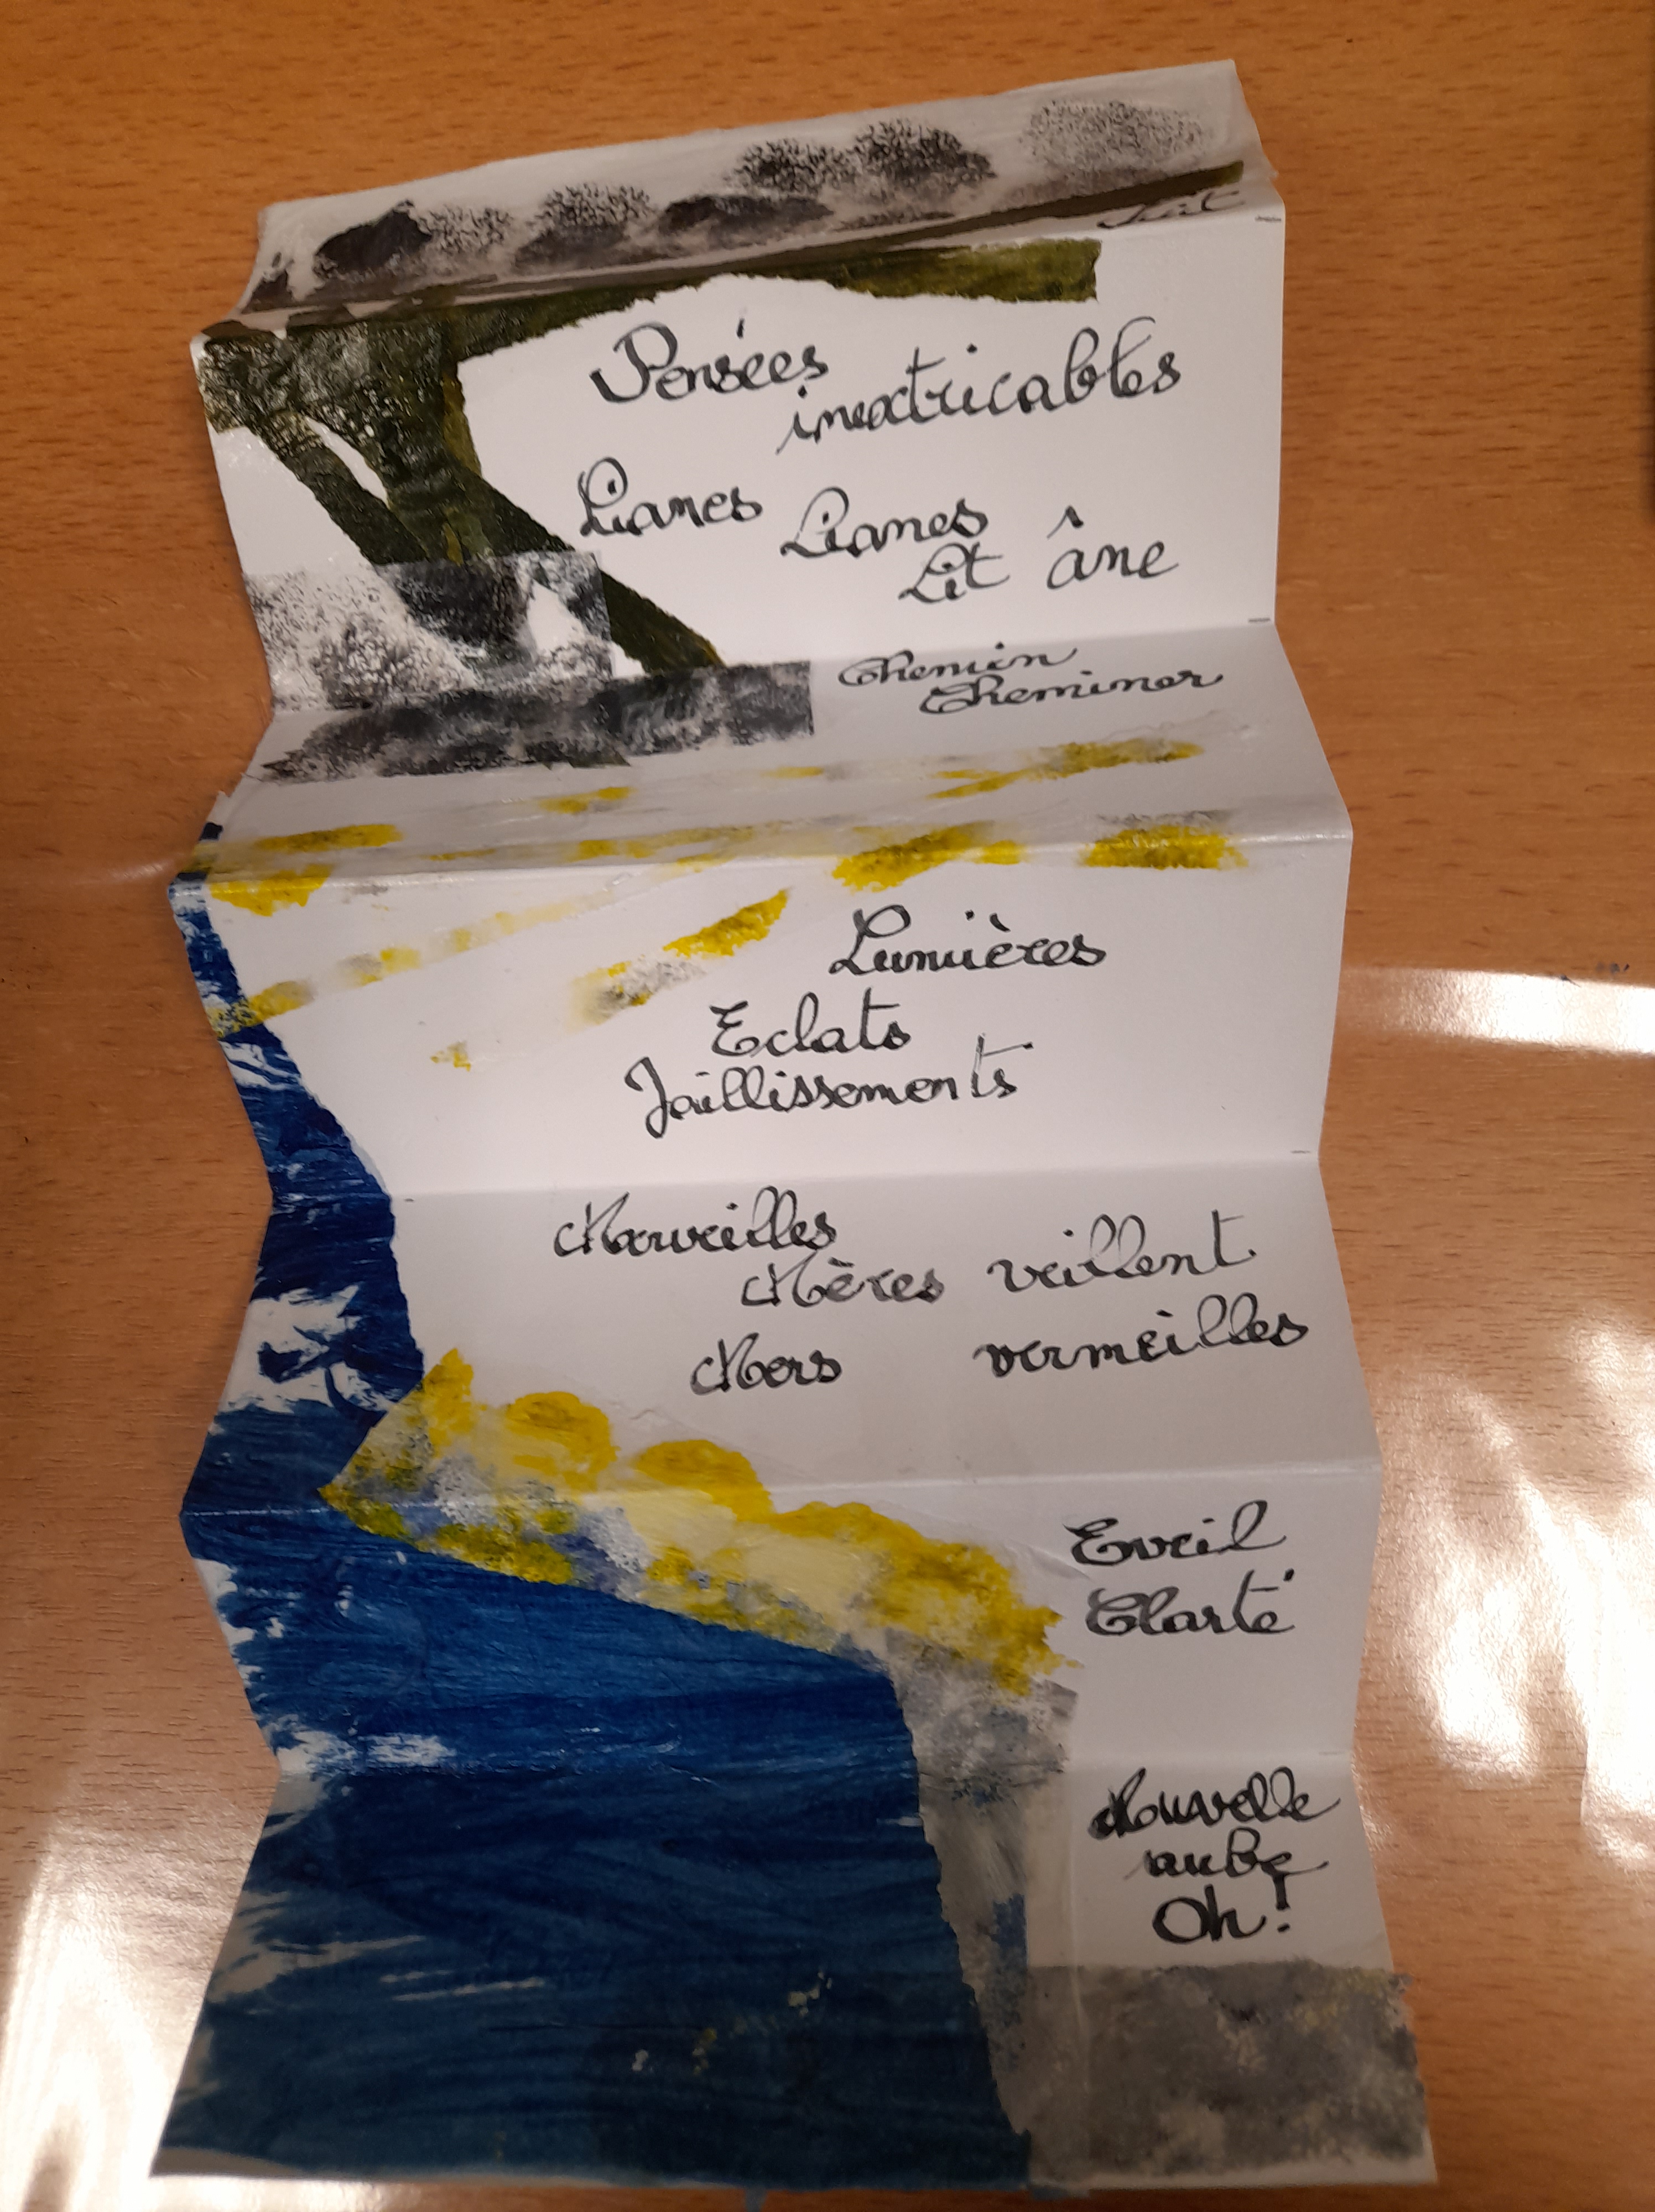 Pensées
inextricables
Lianes
Lianes
Lit âne
Chemin
Cheminer
Lumières
Eclats
Jaillissements
Merveilles
Mères veillent
Mers vermeilles
Eveil
Clarté
Nouvelle
aube
Oh!